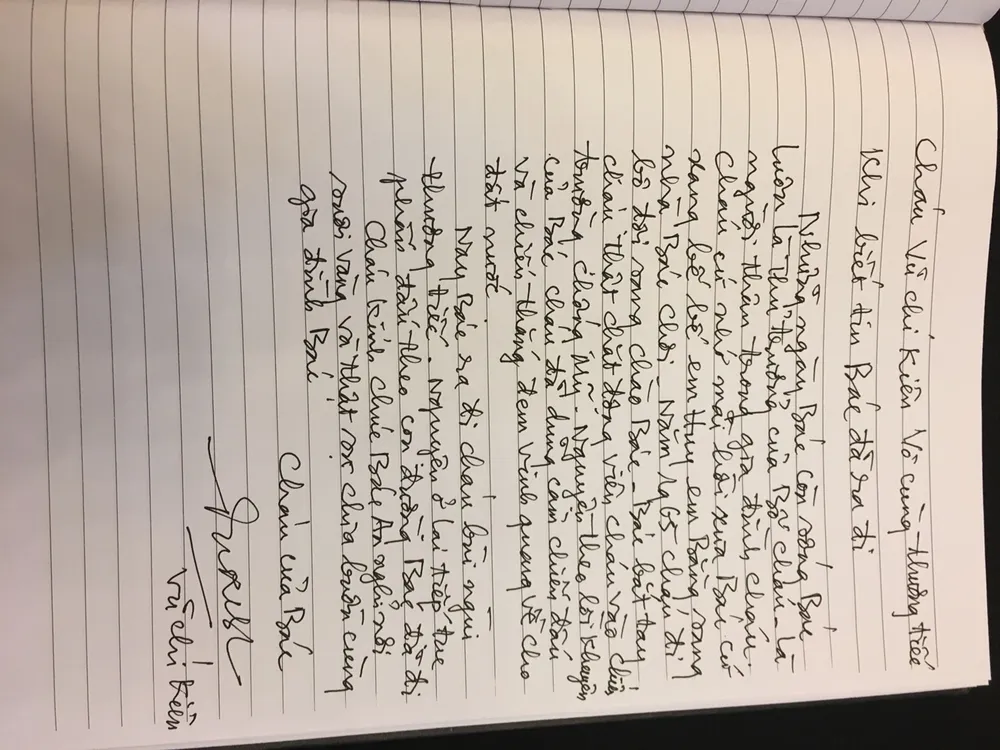 Cháu Vũ chí Kiên Vô cùng thương tiếc
Khi biết tin Bác đã ra đi
Những ngày Bác còn sống Bác
luôn là thủ trưởng của Bố cháu - là
người thân trong gia đình cháu.
Cháu cứ nhớ mãi hồi xưa Bác cứ
xang bế bé em Huy em Bằng sang
nhà Bác chơi - Năm 1965 cháu đi
bộ đội sang chào Bác - Bác bắt tay
cháu thật chặt động viên cháu vào chiến
trường chống Mỹ - Nguyện theo lời khuyên
của Bác cháu đã dũng cảm chiến đấu
và chiến thắng đem vinh quang về cho
đất nước
Nay Bác ra đi cháu bùi ngùi
thương tiếc. Nguyện ở lại tiếp tục
phấn đấu theo con đường Bác đã đi
Cháu kính chúc Bác An nghỉ nơi
suối vàng và thật sự chia buồn cùng
gia đình Bác
Cháu của Bác
Vũ chí Kiên